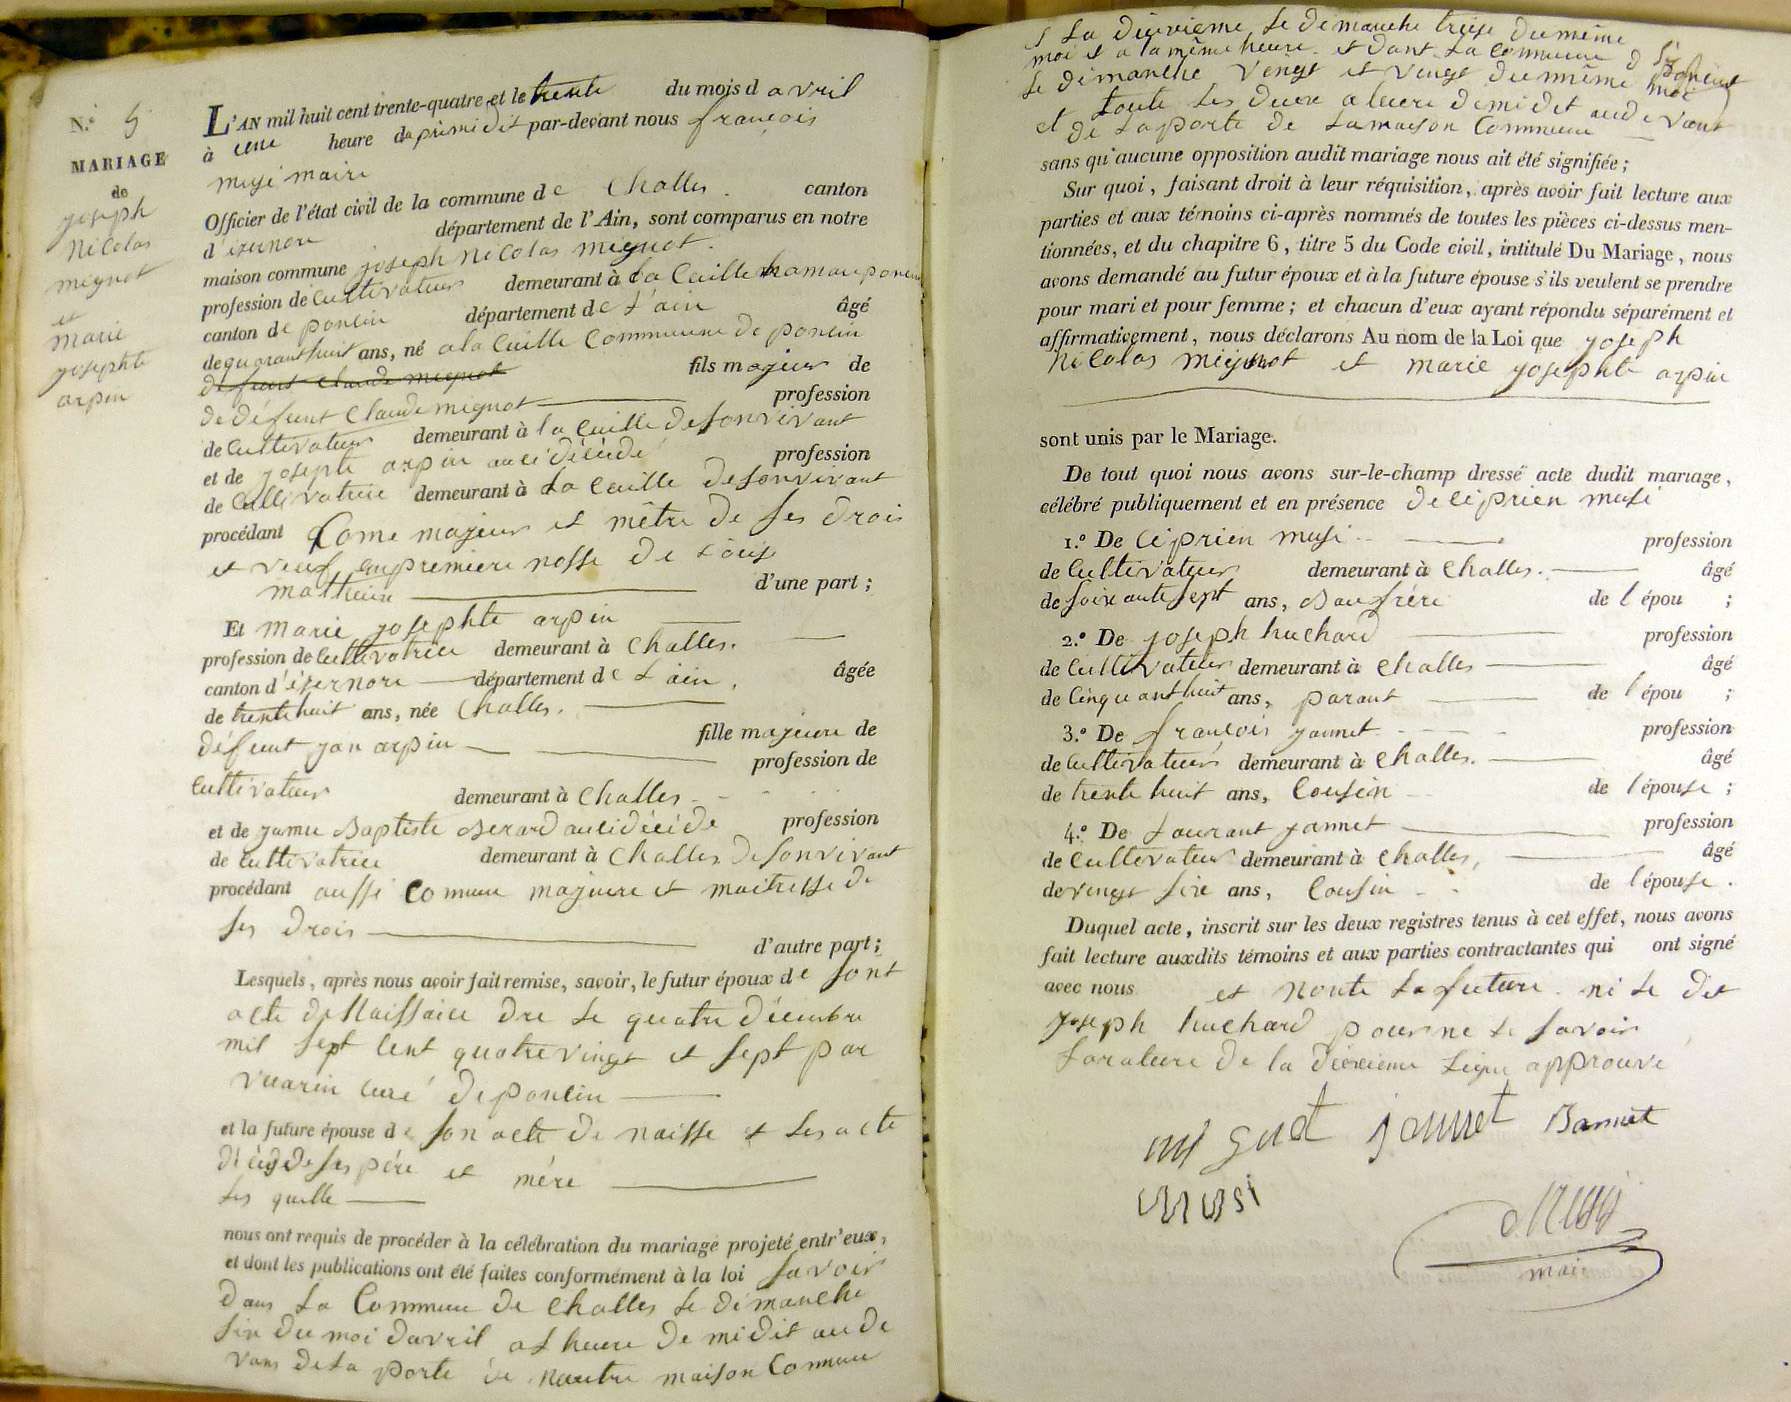 N.º 5
MARIAGE
de
joseph
nicolas
mignot
et
marie
josephte
arpin
L'AN mil huit cent trente-quatre et le trente du mois d avril
à une heure da primidit par-devant nous françois
musi maire
Officier de l'état civil de la commune de Challes. canton
d'isernore département de l'Ain, sont comparus en notre
maison commune joseph nicolas mignot.
profession de Cultivateur demeurant à la Cuille hamau poncin
canton de poncin département de l'ain âgé
de quarant huit ans, né a la Cuille Commune de poncin
défunt claude mignot fils majeur de
de défunt Claude mignot profession
de Cultivateur demeurant à la Cuille de sonvivant
et de josephte arpin auci décédé profession
de Cultivatrice demeurant à La Cuille desonvivant
procédant Come majeur et mêtre de ses drois
et veuf enpremiere nosse de Louise
matheux d'une part ;
Et marie josephte arpin
profession de Cultivatrice demeurant à Challes.
canton d'isernore département de L'ain, âgée
de trente huit ans, née Challes.
défunt jan arpin fille majeure de
profession de
Cultivateur demeurant à Challes
et de jamu Baptiste Berard auci décéde profession
de Cultivatrice demeurant à Challes desonvivant
procédant aussi Comme majeure et maitresse de
ses drois
d'autre part ;
Lesquels, après nous avoir fait remise, savoir, le futur époux de sont
acte de Naissaice dre le quatre décembre
mil sept cent quatre vingt et sept par
vuarin curé de poncin
et la future épouse de son acte de naisse et les acte
décés de ses pére et mére
Les quelle
nous ont requis de procéder à la célébration du mariage projeté entr'eux,
et dont les publications ont été faites conformément à la loi savoir
dans La Commune de Challes le dimanche
six du moi davril a L heure de midit aude
vans de La porte de nautre maison Commune
et La dieuxieme le demanche treize dumême
moi et a la même heure et dant La Commune d poncin
le dimanche vengt et vengt dumême moi
et toute les deux a leure demidit aude vant
de La porte de Lamaison Commune
sans qu'aucune opposition audit mariage nous ait été signifiée ;
Sur quoi, faisant droit à leur réquisition, après avoir fait lecture aux
parties et aux témoins ci-après nommés de toutes les pièces ci-dessus men-
tionnées, et du chapitre 6, titre 5 du Code civil, intitulé Du Mariage, nous
avons demandé au futur époux et à la future épouse s'ils veulent se prendre
pour mari et pour femme ; et chacun d'eux ayant répondu séparément et
affirmativement, nous déclarons Au nom de la Loi que joseph
nicolas mignot et marie josephte arpin
sont unis par le Mariage.
De tout quoi nous avons sur-le-champ dressé acte dudit mariage,
célébré publiquement et en présence de Ciprien musi
1.º De Ciprien musi profession
de Cultivateur demeurant à Challes. âgé
de soixante sept ans, Baufrére de l épou ;
2.º De joseph huchard profession
de Cultivateur demeurant à Challes âgé
de Cinquant huit ans, parant de l épou ;
3.º De françois jannet profession
de Cultivateur demeurant à Challes. âgé
de trente huit ans, Cousin de l'épouse ;
4.º De Laurant jannet profession
de Cultivateur demeurant à Challes, âgé
de vengt sixe ans, Cousin de l'épouse.
Duquel acte, inscrit sur les deux registres tenus à cet effet, nous avons
fait lecture auxdits témoins et aux parties contractantes qui ont signé
avec nous et nonte La future ni le dit
joseph huchard pour ne le savoir
La rature de la dixieme Ligne approuvé
mignot jannet Bannet
musi
Musi
maire